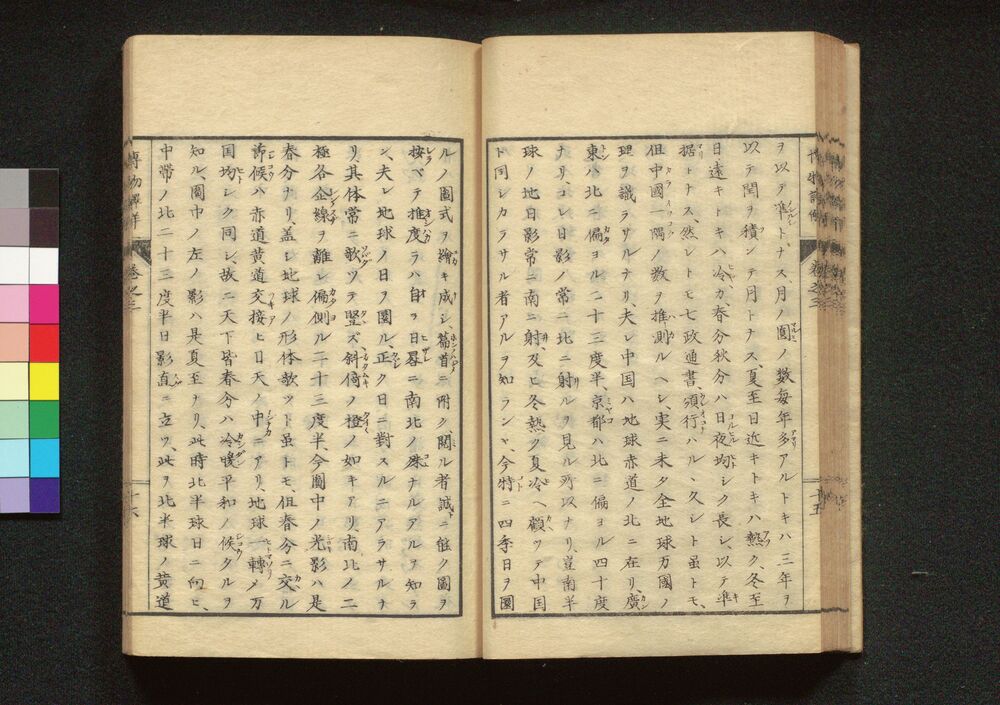 ヲ以テ準トナス月ノ圓ノ数毎年多アルトキハ三年ヲ
以テ閏ヲ積ンテ月トナス、夏至日近キトキハ熱ク、冬至
日遠キトキハ冷カ、春分秋分ハ日夜均シク長シ、以テ準
据トナス、然レトモ七政通書、頒行ハル、久シト虽トモ、
但中國一隅ノ数ヲ推測ルヘシ、実ニ未タ全地球万國ノ
理ヲ識ラサルナリ、夫レ中国ハ地球赤道ノ北ニ在リ、廣
東ハ北ニ偏ヨル二十三度半、京都ハ北ニ偏ヨル四十度
ナリ、コレ日影ノ常ニ北ニ射ルヲ見ル所以ナリ、豈南半
球ノ地日影常ニ南ニ射、及ヒ冬熱ク夏冷ヘ、顧ツテ中国
ト同シカラサル者アルヲ知ランヤ、今特ニ四季日ヲ圓
ルノ圖式ヲ繪キ成シ、篇首ニ附ク、閲ル者誠ニ能ク圖ヲ
按ベテ推度ラハ自ヲ日晷ニ南北ノ殊ナルアルヲ知ラ
ン、夫レ地球ノ日ヲ圓ル、正ク日ニ對スルニアラサルナ
リ、其体常ニ欹ツテ竪ズ、斜倚ノ橙ノ如キアリ、南北ノ二
極各企線ヲ離レ偏側ル二十三度半、今圖中ノ光影ハ是
春分ナリ、盖シ地球ノ形体欹ツト虽トモ、但春分ニ交ル
節候ハ赤道黄道交接ヒ日天ノ中ニアリ、地球一轉メ万
国均シク同シ、故ニ天下皆春分ハ冷暖平和ノ候タルヲ
知ル、圖中ノ左ノ影ハ是夏至ナリ、此時北半球日ニ向ヒ、
中帯ノ北二十三度半日影直ニ立ツ、此ヲ北半球ノ黄道
巻之三
十六
十五